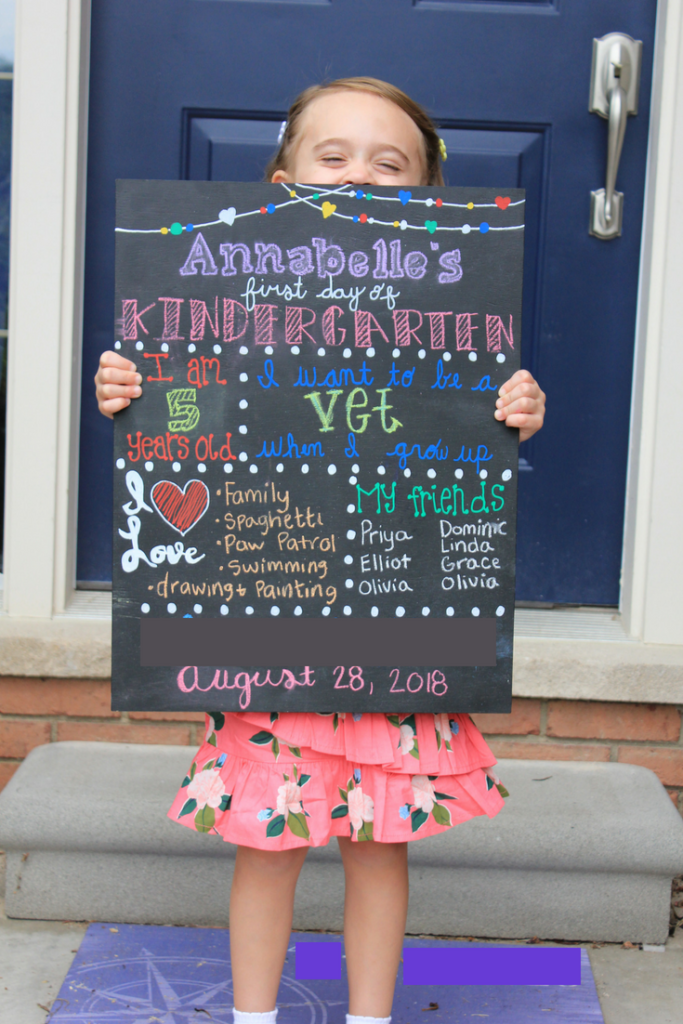 Annabelle's
first day of
KINDERGARTEN
I am
5
years old
I want to be a
vet
when I grow up
I
Love
• Family
• Spaghetti
• Paw Patrol
• Swimming
• drawing + Painting
My friends
Priya
Elliot
Olivia
Dominic
Linda
Grace
Olivia
August 28, 2018